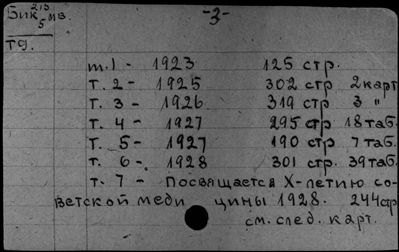 Бик 213 мв. -3-
5
Т9.
т.1 - 1923 125 стр.
т. 2 - 1925 302 стр 2 карт
т. 3 - 1926 319 стр 3 "
т. 4 - 1927 295 стр 18 таб.
т. 5 - 1927 190 стр 7 таб.
т. 6 - 1928 301 стр. 39 таб.
т. 7 - Посвящается X-летию со-
ветской меди цины 1928. 244 стр
см. след. карт.